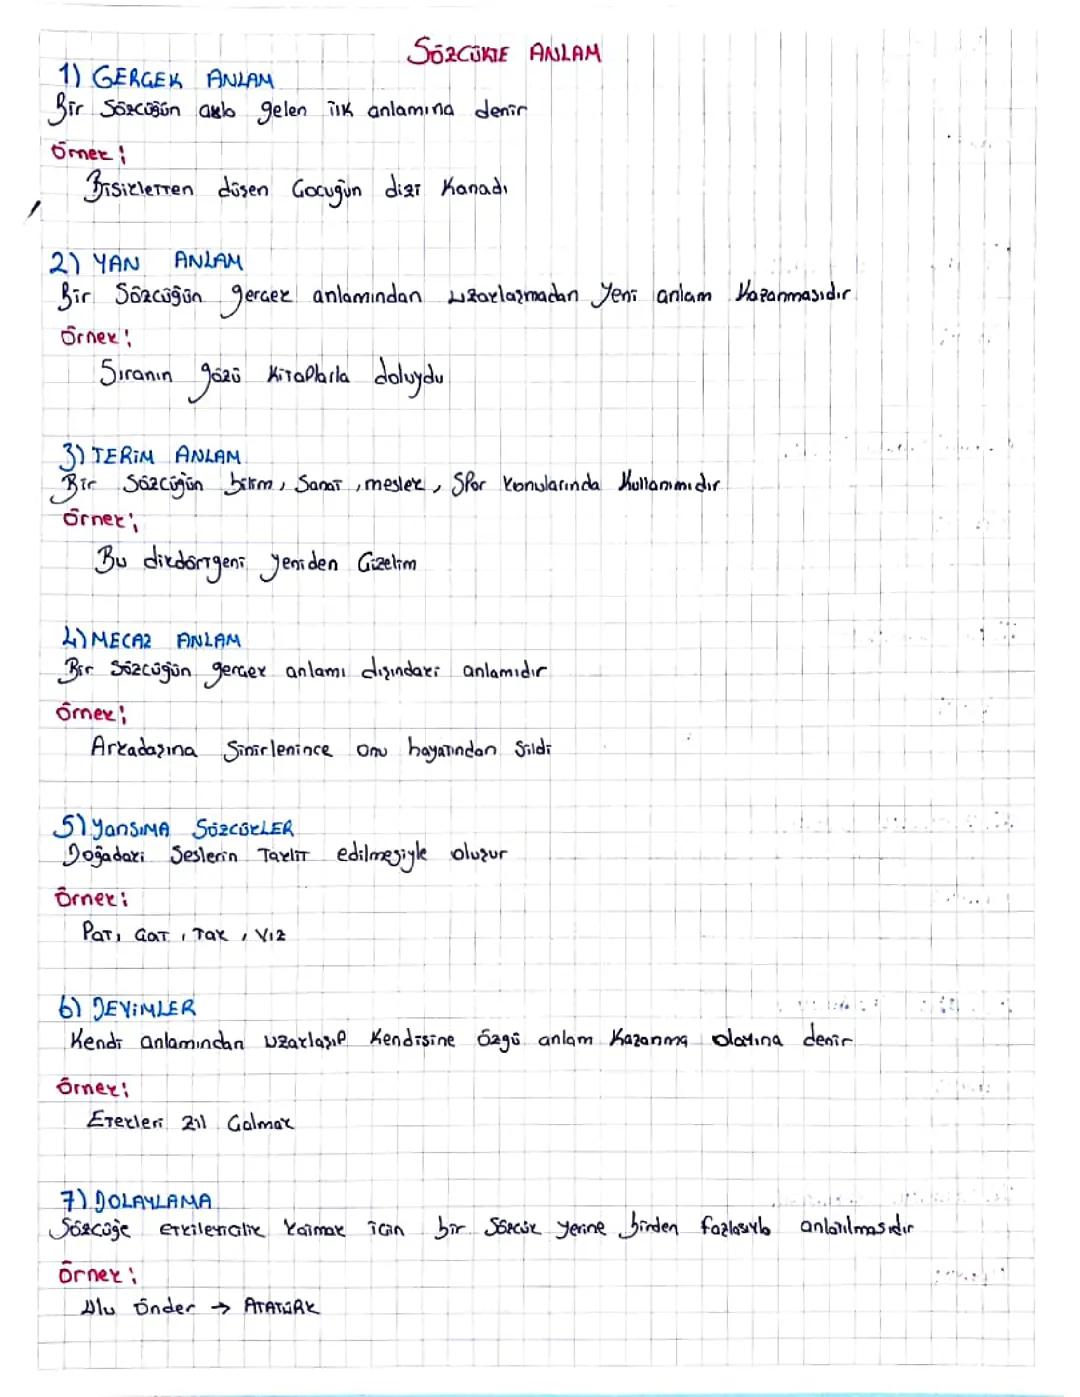 SÖZCÜKTE ANLAM
1) GERÇEK ANLAM
Bir Sözcüğün akla gelen ilk anlamına denir
Örnek:
Bisikletten düşen Çocuğun dizi Kanadı
2) YAN ANLAM
Bir Sözcüğün gerçek anlamından uzaklaşmadan Yeni anlam Kazanmasıdır
Örnek:
Sıranın gözü Kitaplarla doluydu
3) TERİM ANLAM
Bir Sözcüğün bilim, Sanat, meslek, Spor konularında Kullanımıdır
Örnek:
Bu dikdörtgeni yeniden Çizelim
4) MECAZ ANLAM
Bir Sözcüğün gerçek anlamı dışındaki anlamıdır
Örnek:
Arkadaşına Sinirlenince onu hayatından Sildi
5) YANSIMA SÖZCÜKLER
Doğadaki Seslerin Taklit edilmesiyle oluşur
Örnek:
Pat, Çat, Tak, Vız
6) DEYİMLER
Kendi anlamından uzaklaşıp Kendisine özgü anlam Kazanma olayına denir
Örnek:
Etekleri zil Çalmak
7) DOLAYLAMA
Sözcüğe etkileyicilik katmak için bir Sözcük yerine birden fazlasıyla anlatılmasıdır
Örnek:
Ulu Önder → ATATÜRK